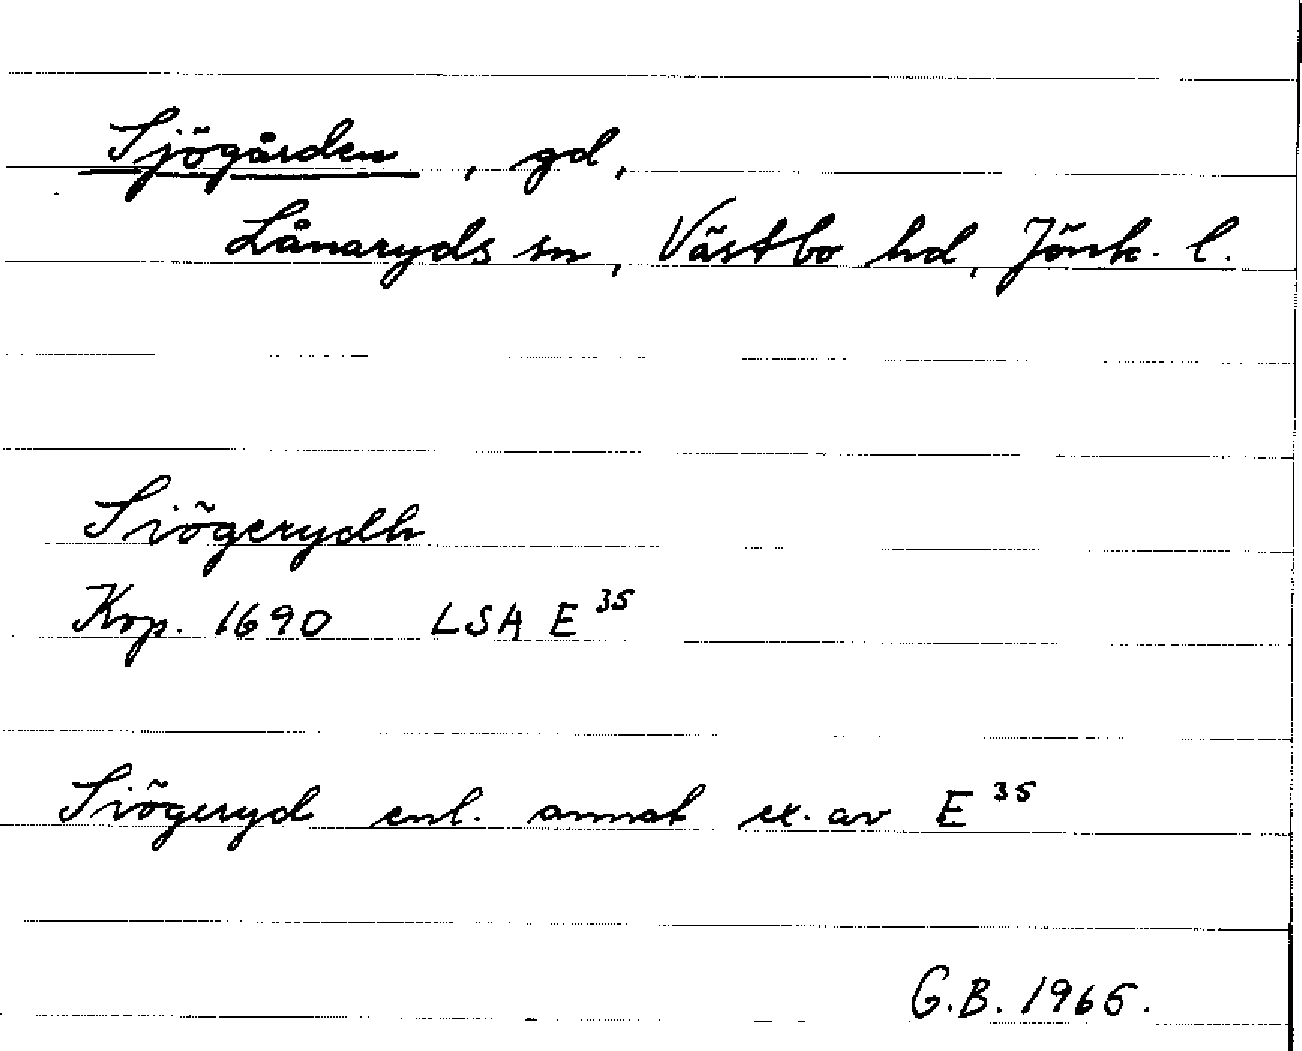 Sjögården, gd,
Långaryds sn, Västbo hd, Jönk. l.
Siögerydh
Kop. 1690 LSA E 35
Siögeryd enl. annat ex. av E 35
G.B. 1965.